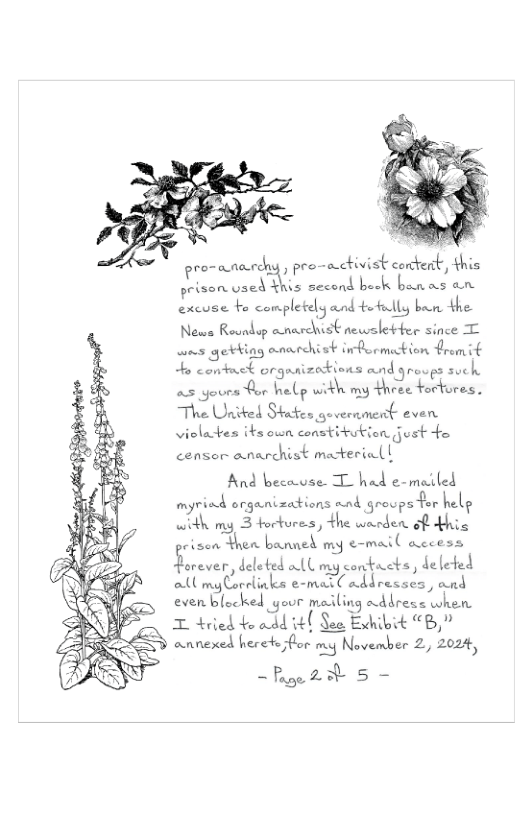 pro-anarchy, pro-activist content, this
prison used this second book ban as an
excuse to completely and totally ban the
News Roundup anarchist newsletter since I
was getting anarchist information from it
to contact organizations and groups such
as yours for help with my three tortures.
The United States government even
violates its own constitution just to
censor anarchist material!
And because I had e-mailed
myriad organizations and groups for help
with my 3 tortures, the warden of this
prison then banned my e-mail access
forever, deleted all my contacts, deleted
all my Corrlinks e-mail addresses, and
even blocked your mailing address when
I tried to add it! See Exhibit “B,”
annexed hereto, for my November 2, 2024,
- Page 2 of 5 -